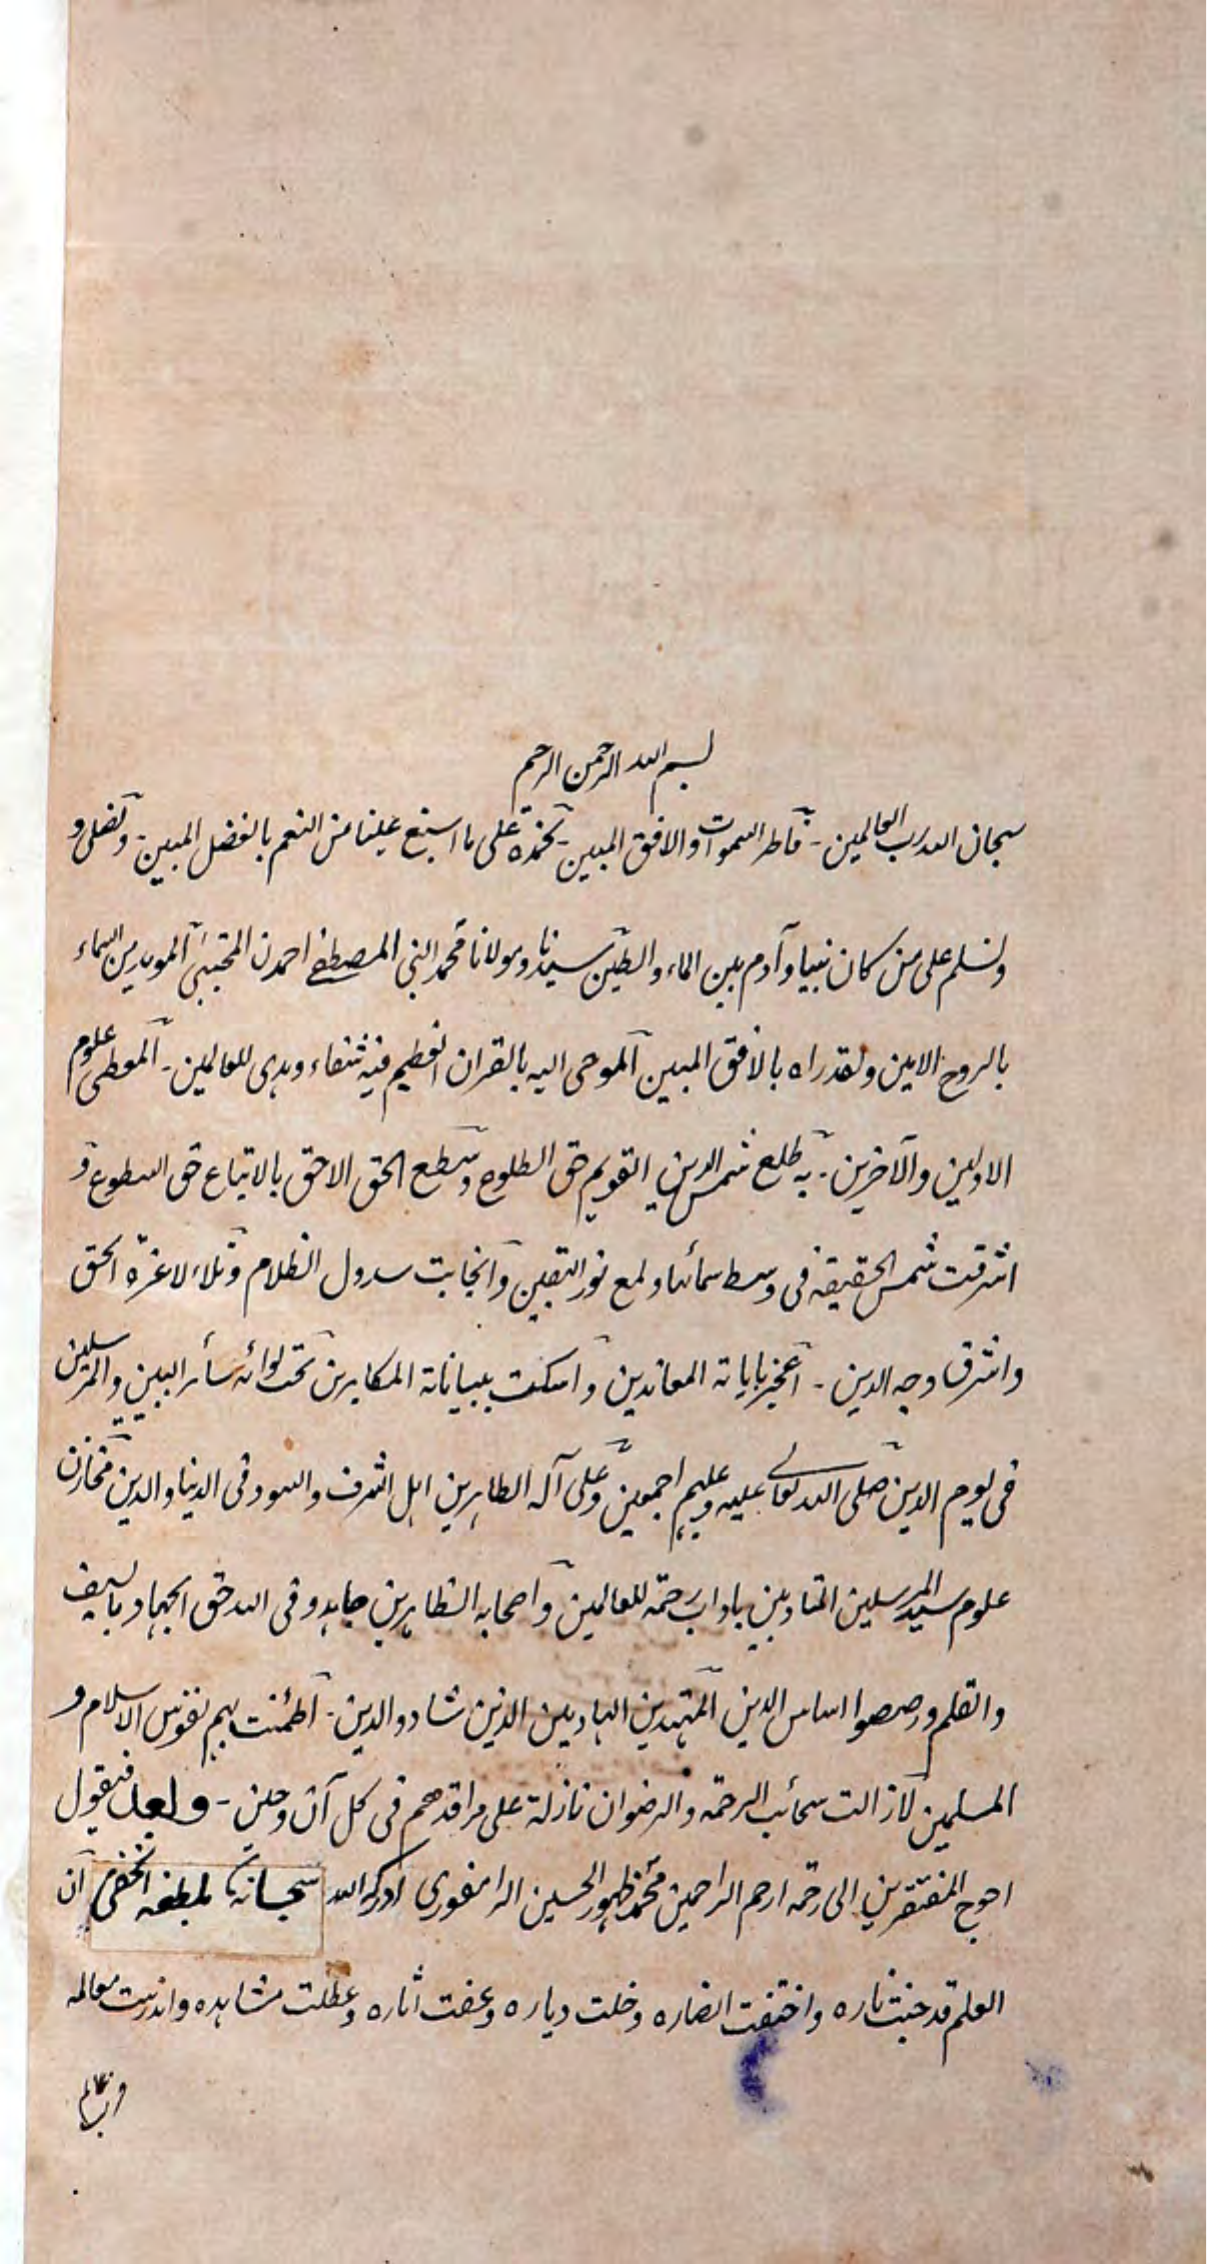 بسم الله الرحمن الرحيم
سبحان الله رب العالمين - فاطر السموات والافق المبين - نحمده على ما اسبغ علينا من النعم بالفضل المبين - ونصلى و
ونسلم على من كان نبيا وآدم بين الماء والطين سيدنا ومولانا محمد النبى المصطفے احمدن المجتبىٰ الموید من السماء
بالروح الامين ولقد راه بالافق المبين الموحى اليه بالقران العظيم فيه شفاء وهدى للعالمين - المعطى علوم
الاولين والآخرين - به طلع شمس الدين القويم حق الطلوع وسطع الحق الاحق بالاتباع حق السطوع و
اشرقت شمس الحقيقة فى وسط سمائها ولمع نور اليقين وانجابت سدول الظلام وتلاءلاء غرة الحق
واشرق وجه الدين - اعجز باياته المعاندين واسكت ببياناته المكابرين تحت لوائه سائر النبيين والمرسلين
فى يوم الدين صلى الله تعالے عليه وعليهم اجمعين وعلى آله الطاهرين اهل الشرف والسود فى الدنيا والدين مخازن
علوم سيد المرسلين المتادبين باداب رحمة للعالمين واصحابه الظاهرين جاهدو فى الله حق الجهاد بالسيف
والقلم ورصصوا اساس الدين المهتدين الهاديين الذين شادو الدين - اطمئنت بهم نفوس الاسلام و
المسلمين لازالت سحائب الرحمة والرضوان نازلة على مراقدهم فى كل آن وحين - وبعد فيقول
احوج المفتقرين الى رحمة ارحم الراحمين محمد ظهور الحسين الرامفورى ادركه الله سبحانه بلطفه الخفى ان
العلم قد خبت ناره واختفت انصاره وخلت دياره وعفت اثاره وعطلت مشاهده واندرست معالمه